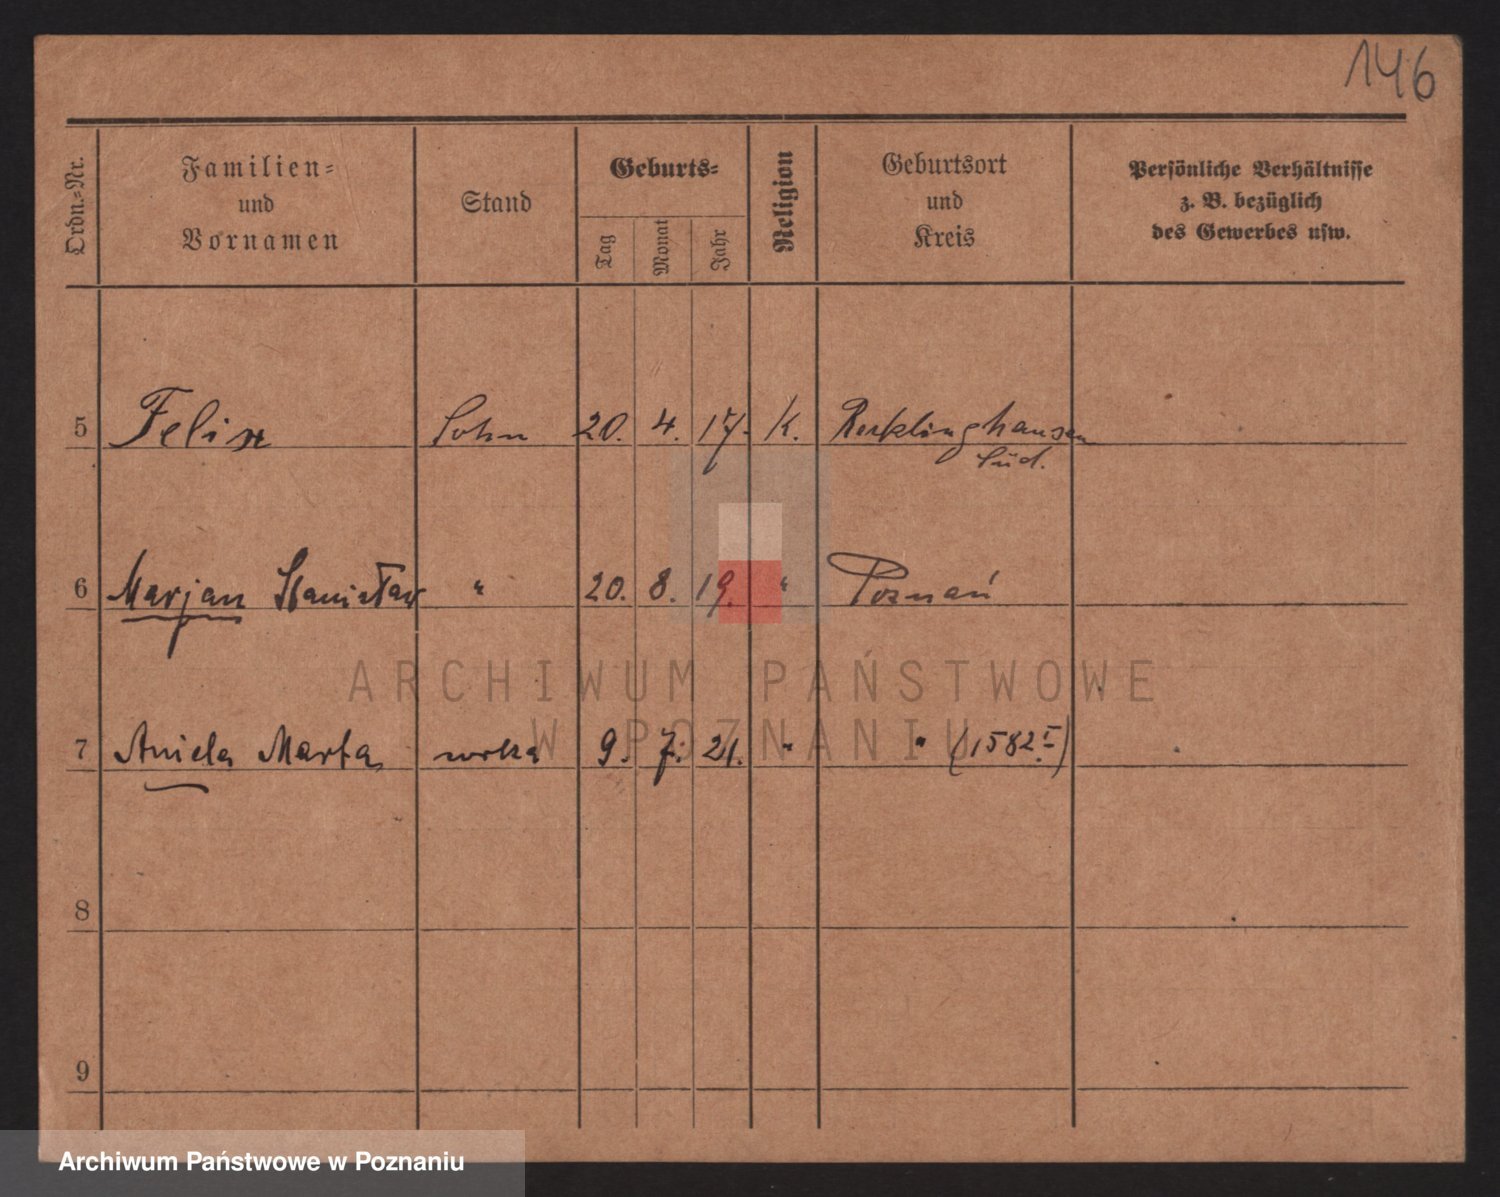 146
Ordn.-Nr.
Familien-
und
Vornamen
Stand
Geburts-
Tag
Monat
Jahr
Religion
Geburtsort
und
Kreis
Persönliche Verhältnisse
z. B. bezüglich
des Gewerbes usw.
5 Felix Sohn 20. 4. 17. K. Recklinghausen
Süd.
6 Marjan Stanisław " 20. 8. 19. " Poznań
ARCHIWUM PAŃSTWOWE
W POZNANIU
7 Aniela Marta córka 9. 7. 21. " " (1582 I)
8
9
Archiwum Państwowe w Poznaniu